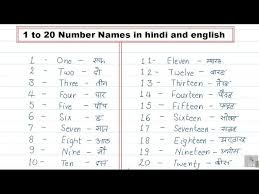 1 to 20 Number Names in hindi and english
1 - One - एक
2 - Two - दो
3 - Three - तीन
4 - Four - चार
5 - Five - पाँच
6 - Six
7 - Seven - सात
8 - Eight
9 - Nine - नौ
10 - Ten - दस
11 - Eleven - ग्यारह
12 - Twelve - बारह
13 - Thirteen - तेरह
14 - Fourteen - चौदह
15 - Fifteen
16 - Sixteen - सोलह
17 - Seventeen
18 - Eighteen
19 - Nineteen
20 - Twenty - बीस